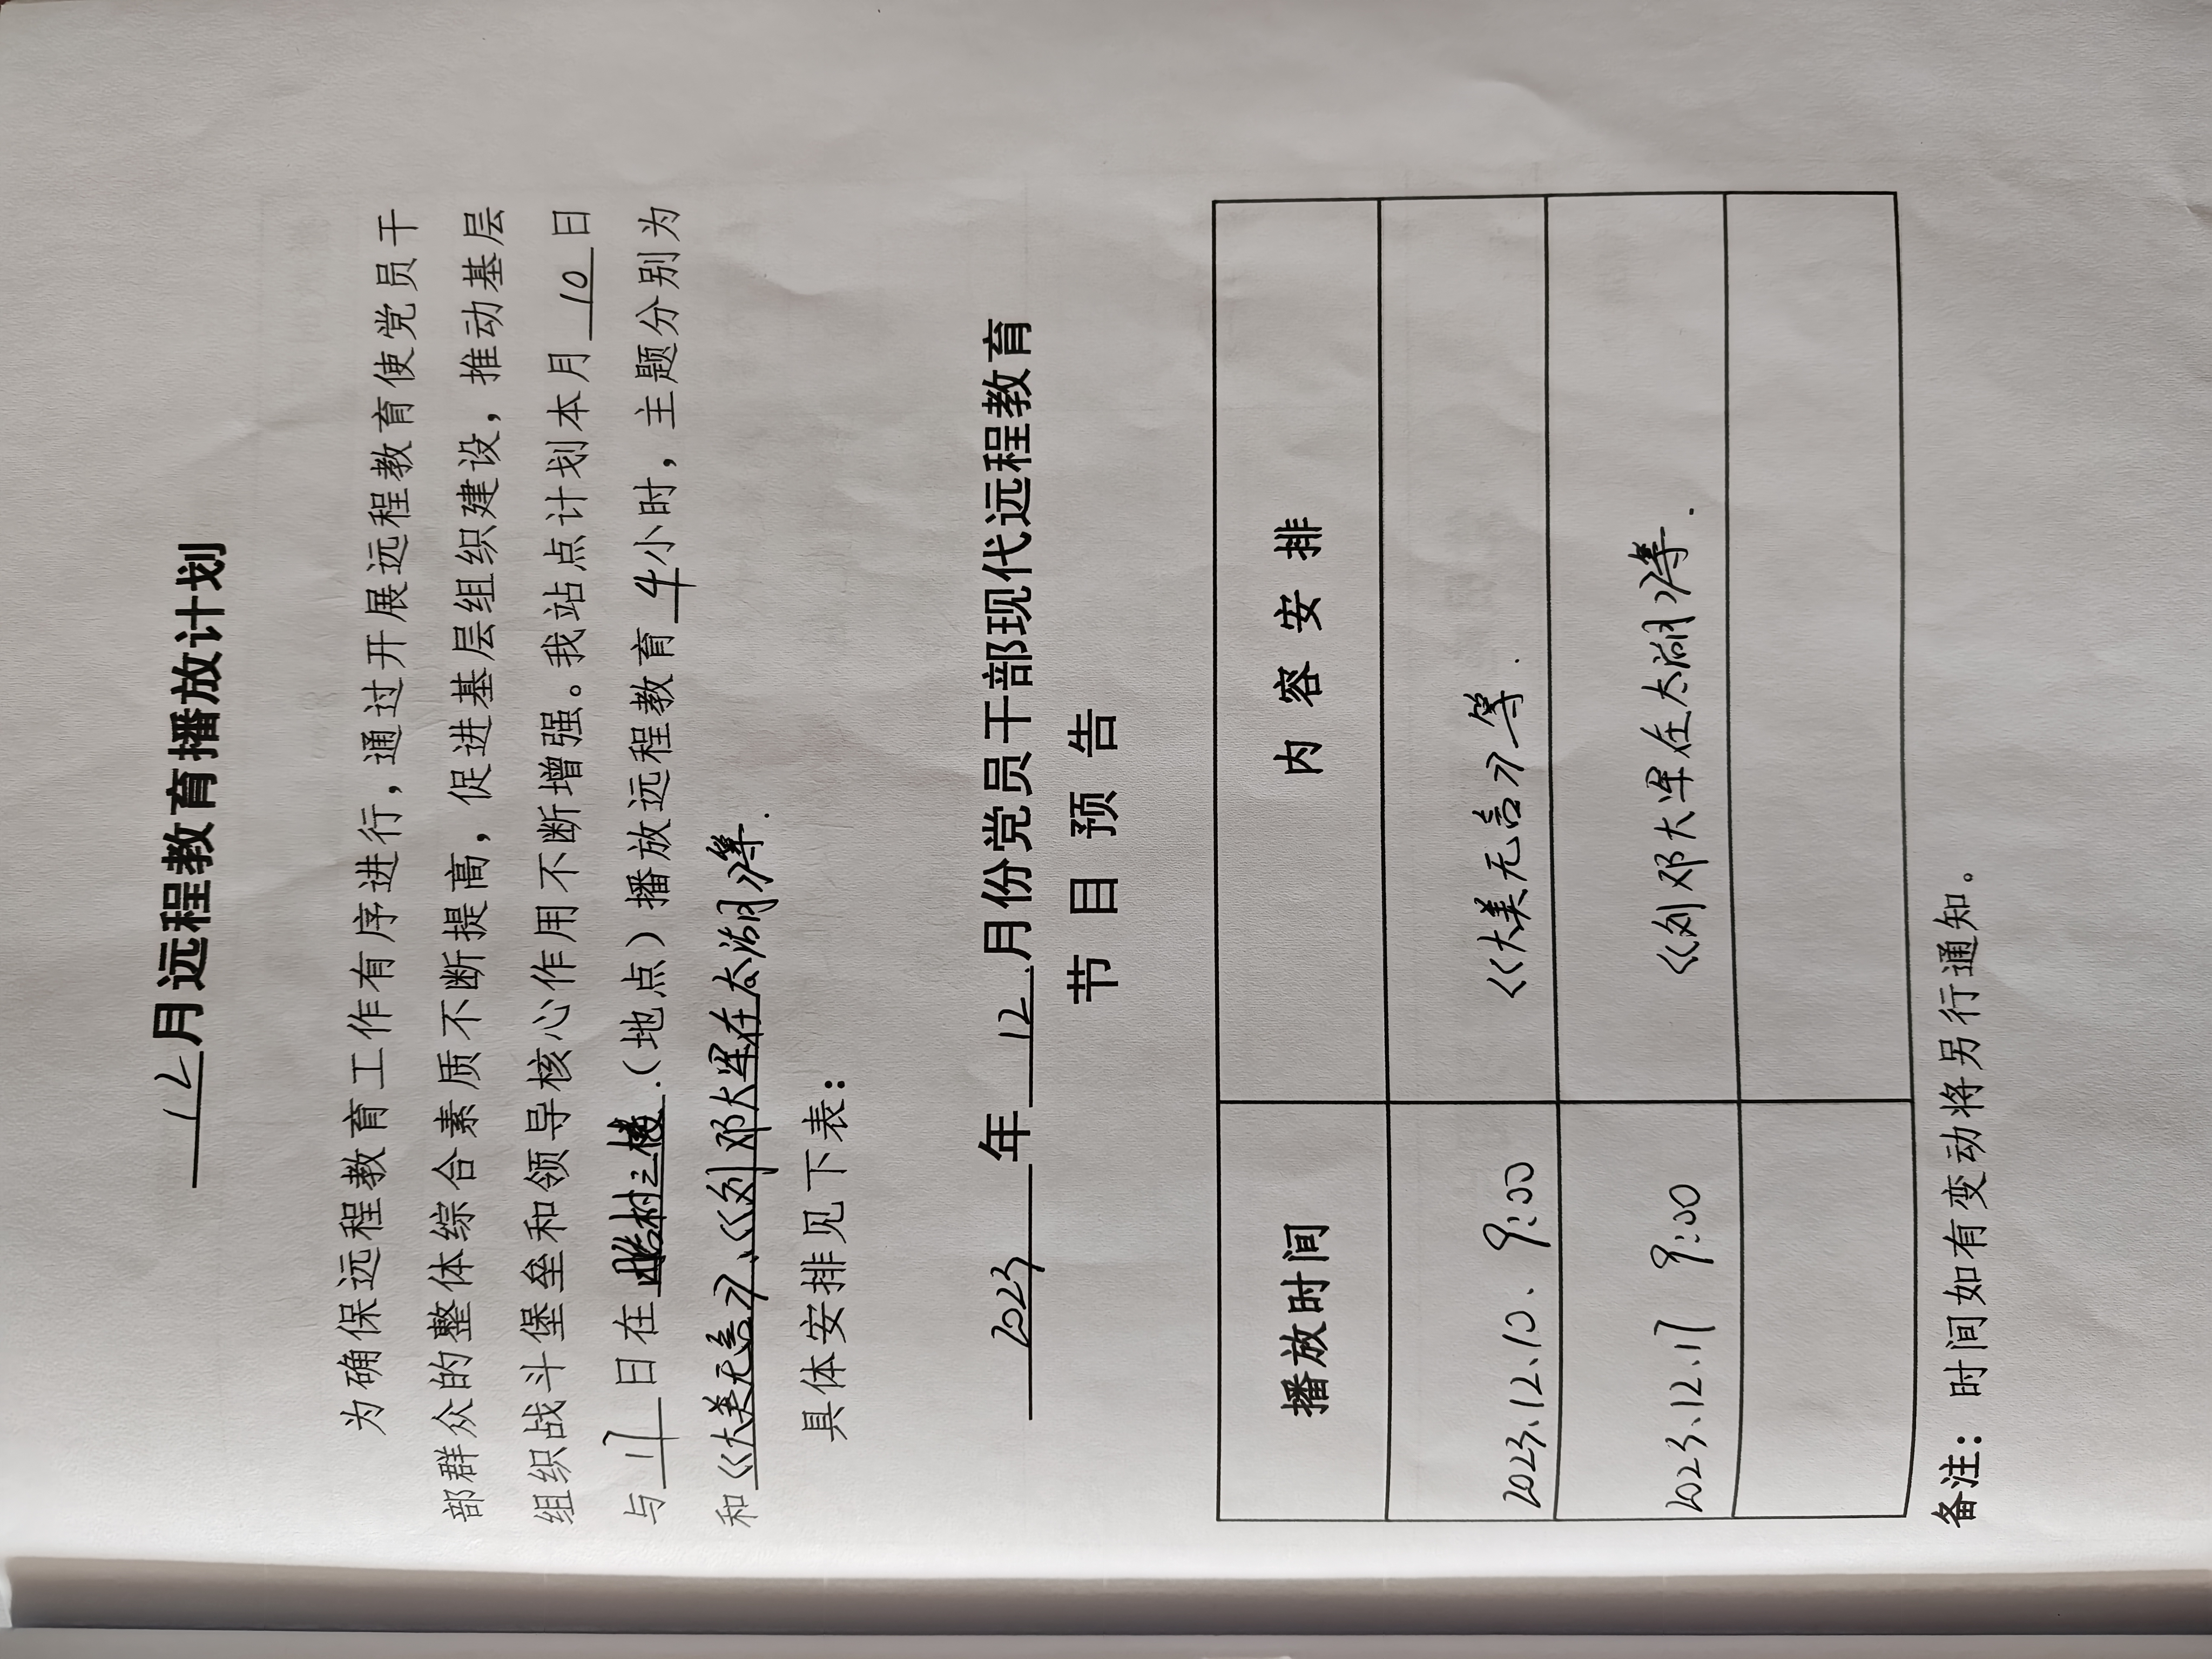 12月远程教育播放计划
为确保远程教育工作有序进行，通过开展远程教育使党员干
部群众的整体综合素质不断提高，促进基层组织建设，推动基层
组织战斗堡垒和领导核心作用不断增强。我站点计划本月 10 日
与 17 日在 村三楼.（地点）播放远程教育 4 小时，主题分别为
和《大美无言》、《刘邓大军在太湖》等.
具体安排见下表：
2023 年 12 月份党员干部现代远程教育
节目预告
播放时间 内容安排
2023.12.10、9:00 《大美无言》等.
2023.12.17 9:00 《刘邓大军在太湖》等.
备注：时间如有变动将另行通知。